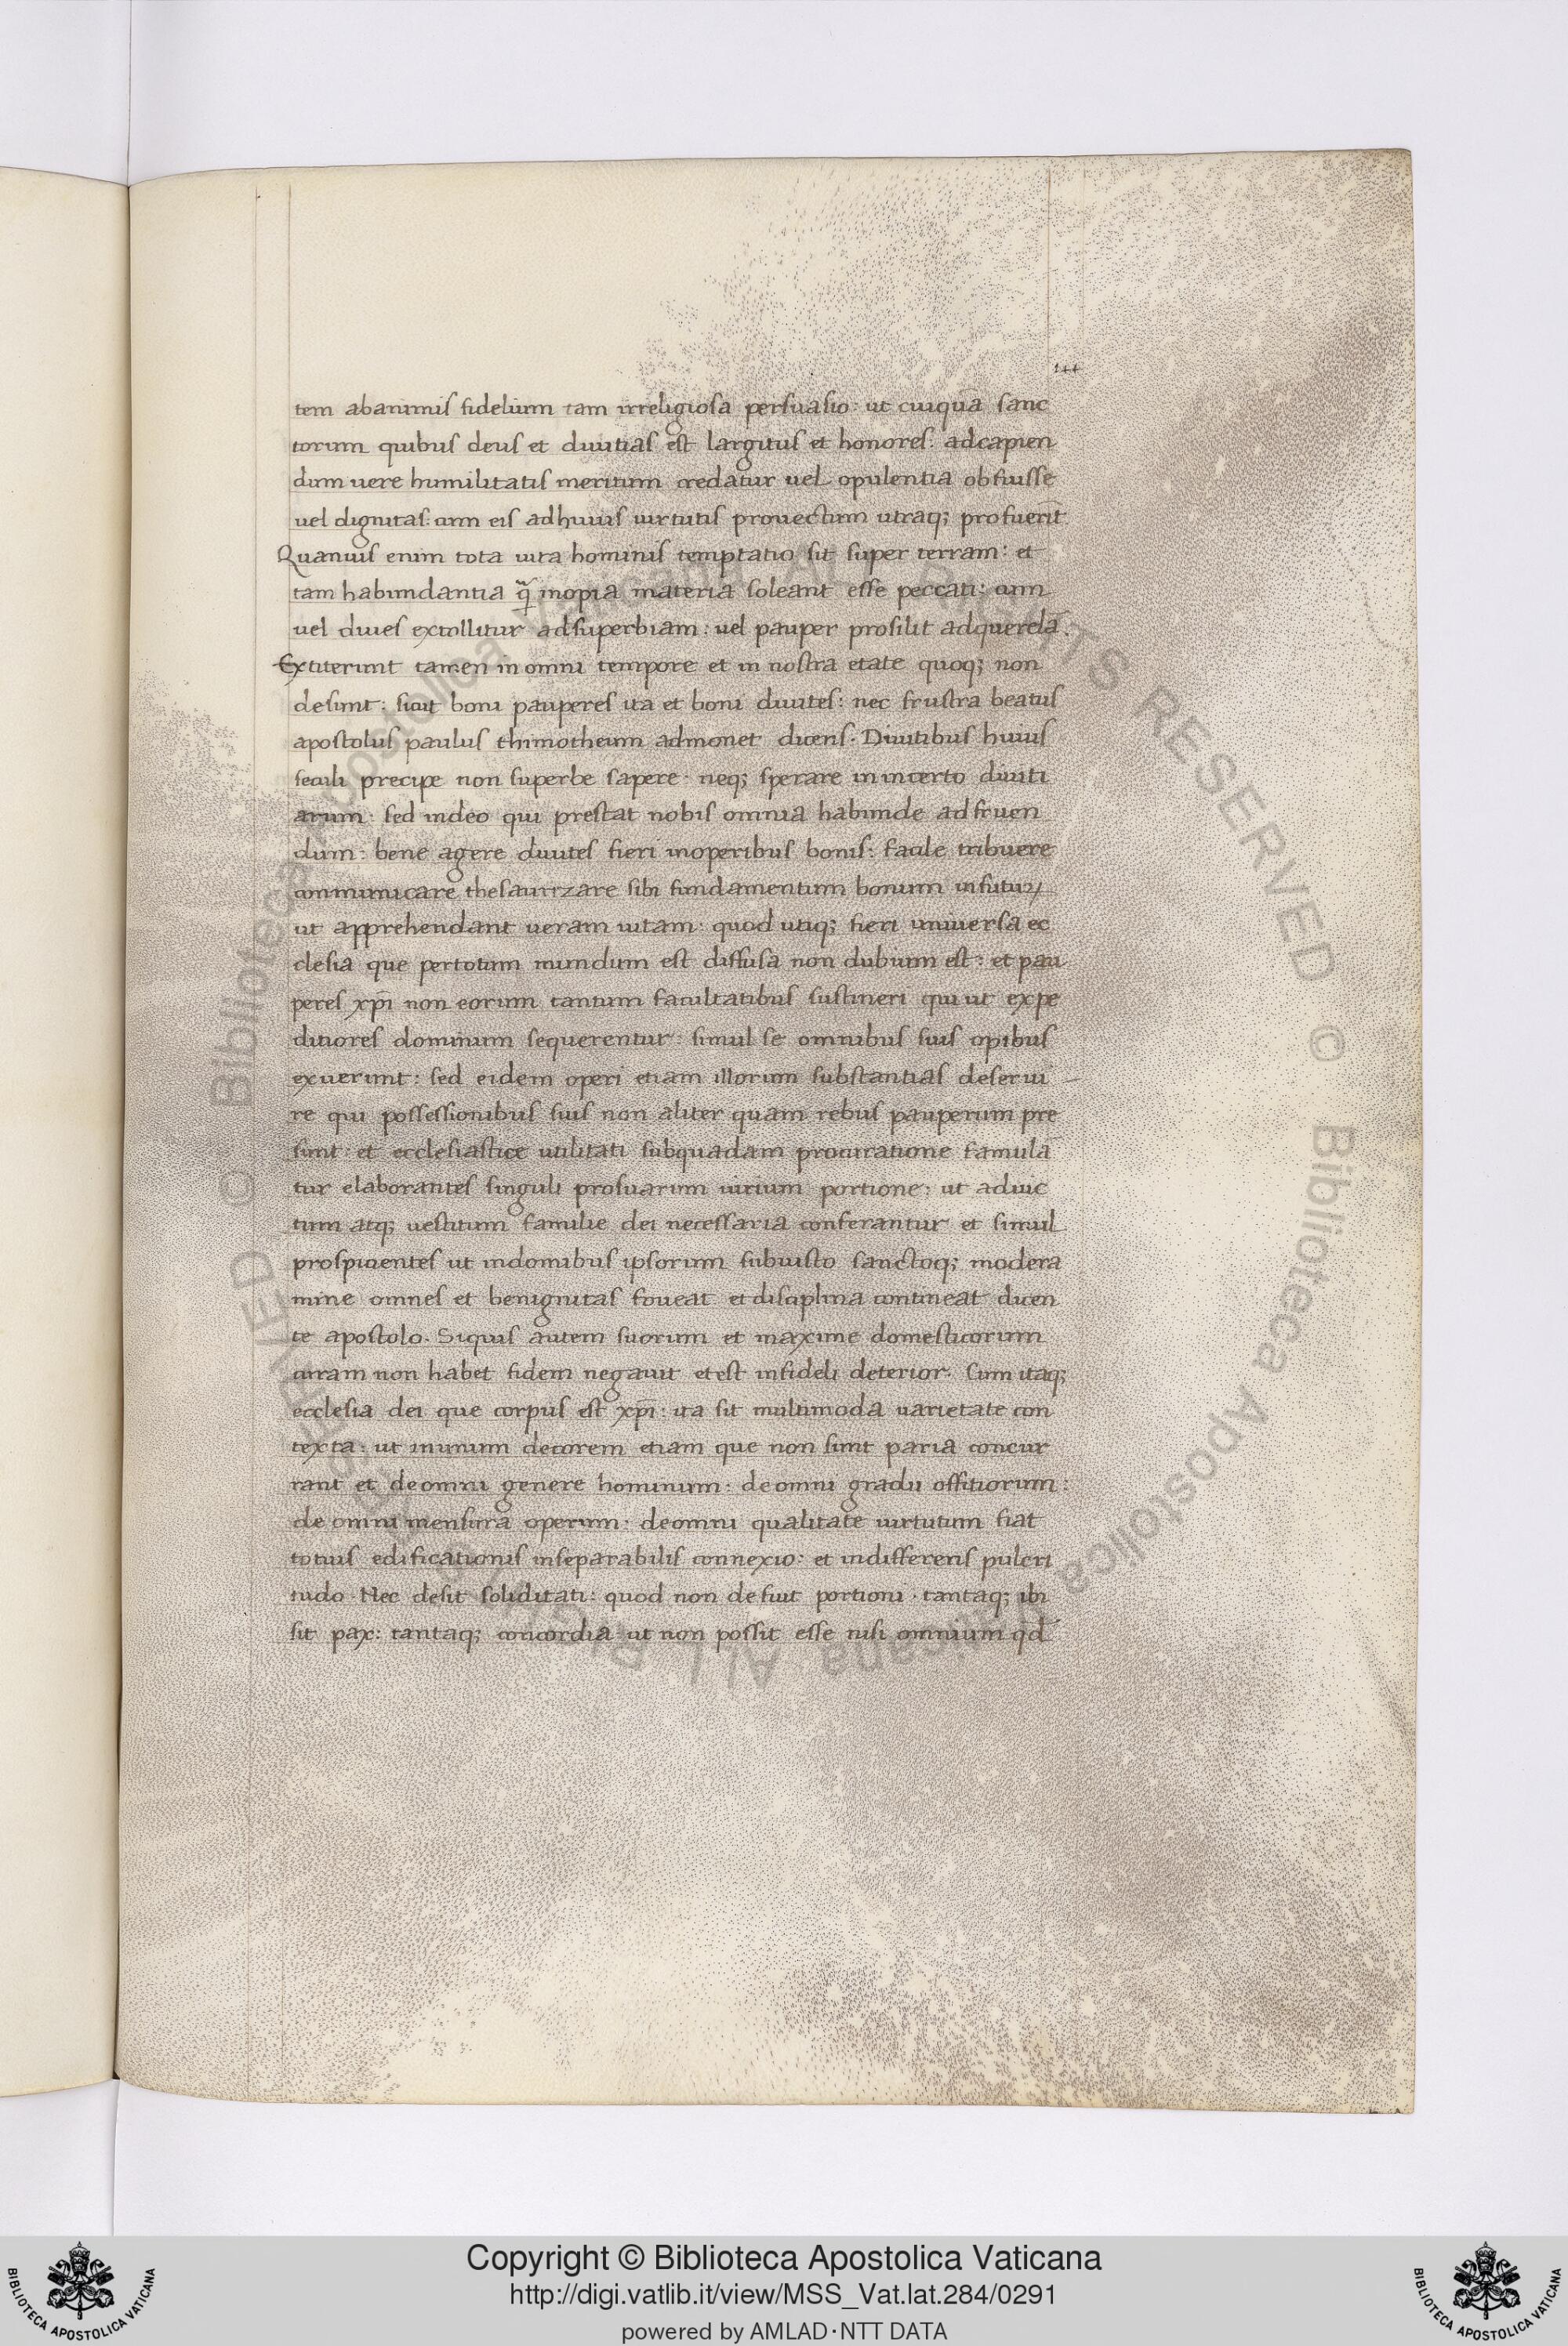 144
tem ab animis fidelium tam irreligiosa persuasio: ut cuiquā sanc
torum quibus deus et diuitias est largitus et honores: ad capien
dum uere humilitatis meritum credatur uel opulentia obfuisse
uel dignitas. cum eis ad huius uirtutis prouectum utraq; profuerit
Quamuis enim tota uita hominis temptatio sit super terram: et
tam habundantia q̃ inopia materia soleant esse peccati: cum
uel diues extollitur ad superbiam: uel pauper prosilit ad querelā.
Extiterunt tamen in omni tempore et in nostra etate quoq; non
desunt: sicut boni pauperes ita et boni diuites: nec frustra beatus
apostolus paulus thimotheum admonet dicens. Diuitibus huius
seculi precipe non superbe sapere: neq; sperare in incerto diuiti
arum: sed in deo qui prestat nobis omnia habunde ad fruen
dum: bene agere diuites fieri in operibus bonis: facile tribuere
communicare thesaurizare sibi fundamentum bonum in futuꝝ
ut apprehendant ueram uitam: quod utiq; fieri uniuersa ec
clesia que per totum mundum est diffusa non dubium est: et pau
peres xp̄i non eorum tantum facultatibus sustineri qui ut expe
ditiores dominum sequerentur: simul se omnibus suis opibus
exuerunt: sed eidem operi etiam illorum substantias deserui
re qui possessionibus suis non aliter quam rebus pauperum pre
sunt: et ecclesiastice utilitati sub quadam procuratione famulā
tur elaborantes singuli pro suarum uirium portione: ut ad uic
tum atq; uestitum familie dei necessaria conferantur et simul
prospicientes ut in domibus ipsorum sub iusto sanctoq; modera
mine omnes et benignitas foueat et disciplina contineat dicen
te apostolo. Siquis autem suorum et maxime domesticorum
curam non habet fidem negauit et est infideli deterior. Cum itaq;
ecclesia dei que corpus est xp̄i: ita sit multimoda uarietate con
texta: ut in unum decorem etiam que non sunt paria concur
rant et de omni genere hominum: de omni gradu offitiorum:
de omni mensura operum: de omni qualitate uirtutum fiat
totius edificationis inseparabilis connexio: et indifferens pulcri
tudo. Nec desit soliditati: quod non defuit portioni. tantaq; ibi
sit pax: tantaq; concordia ut non possit esse nisi omnium qd̄
© Biblioteca Apostolica Vaticana ALL RIGHTS RESERVED © Biblioteca Apostolica Vaticana ALL RIGHTS RESERVED
Copyright © Biblioteca Apostolica Vaticana
http://digi.vatlib.it/view/MSS_Vat.lat.284/0291
powered by AMLAD·NTT DATA
BIBLIOTECA APOSTOLICA VATICANA
BIBLIOTECA APOSTOLICA VATICANA